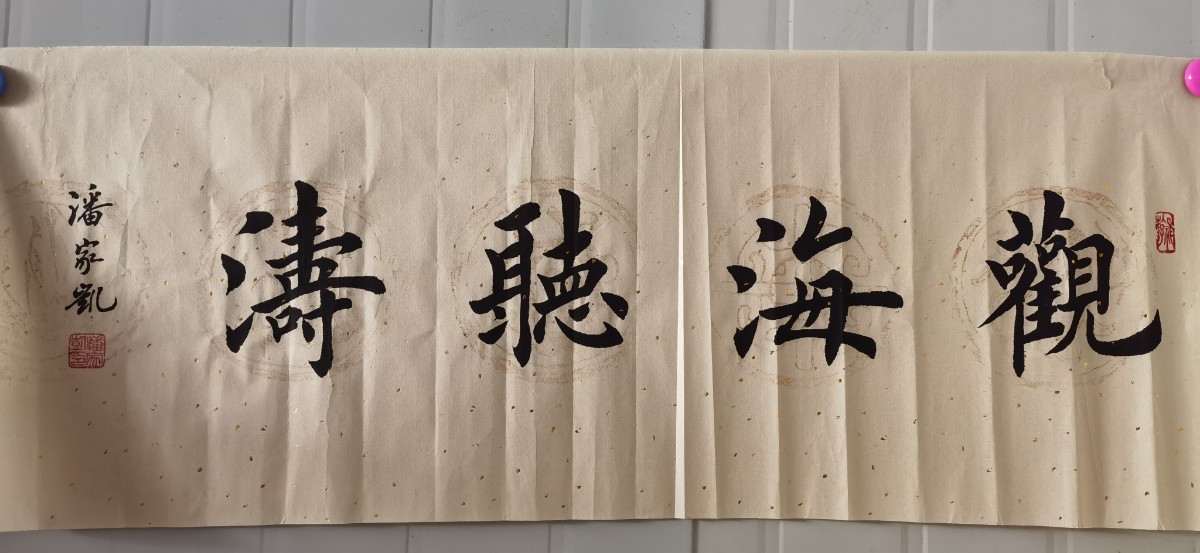 觀海聽濤
潘家凱